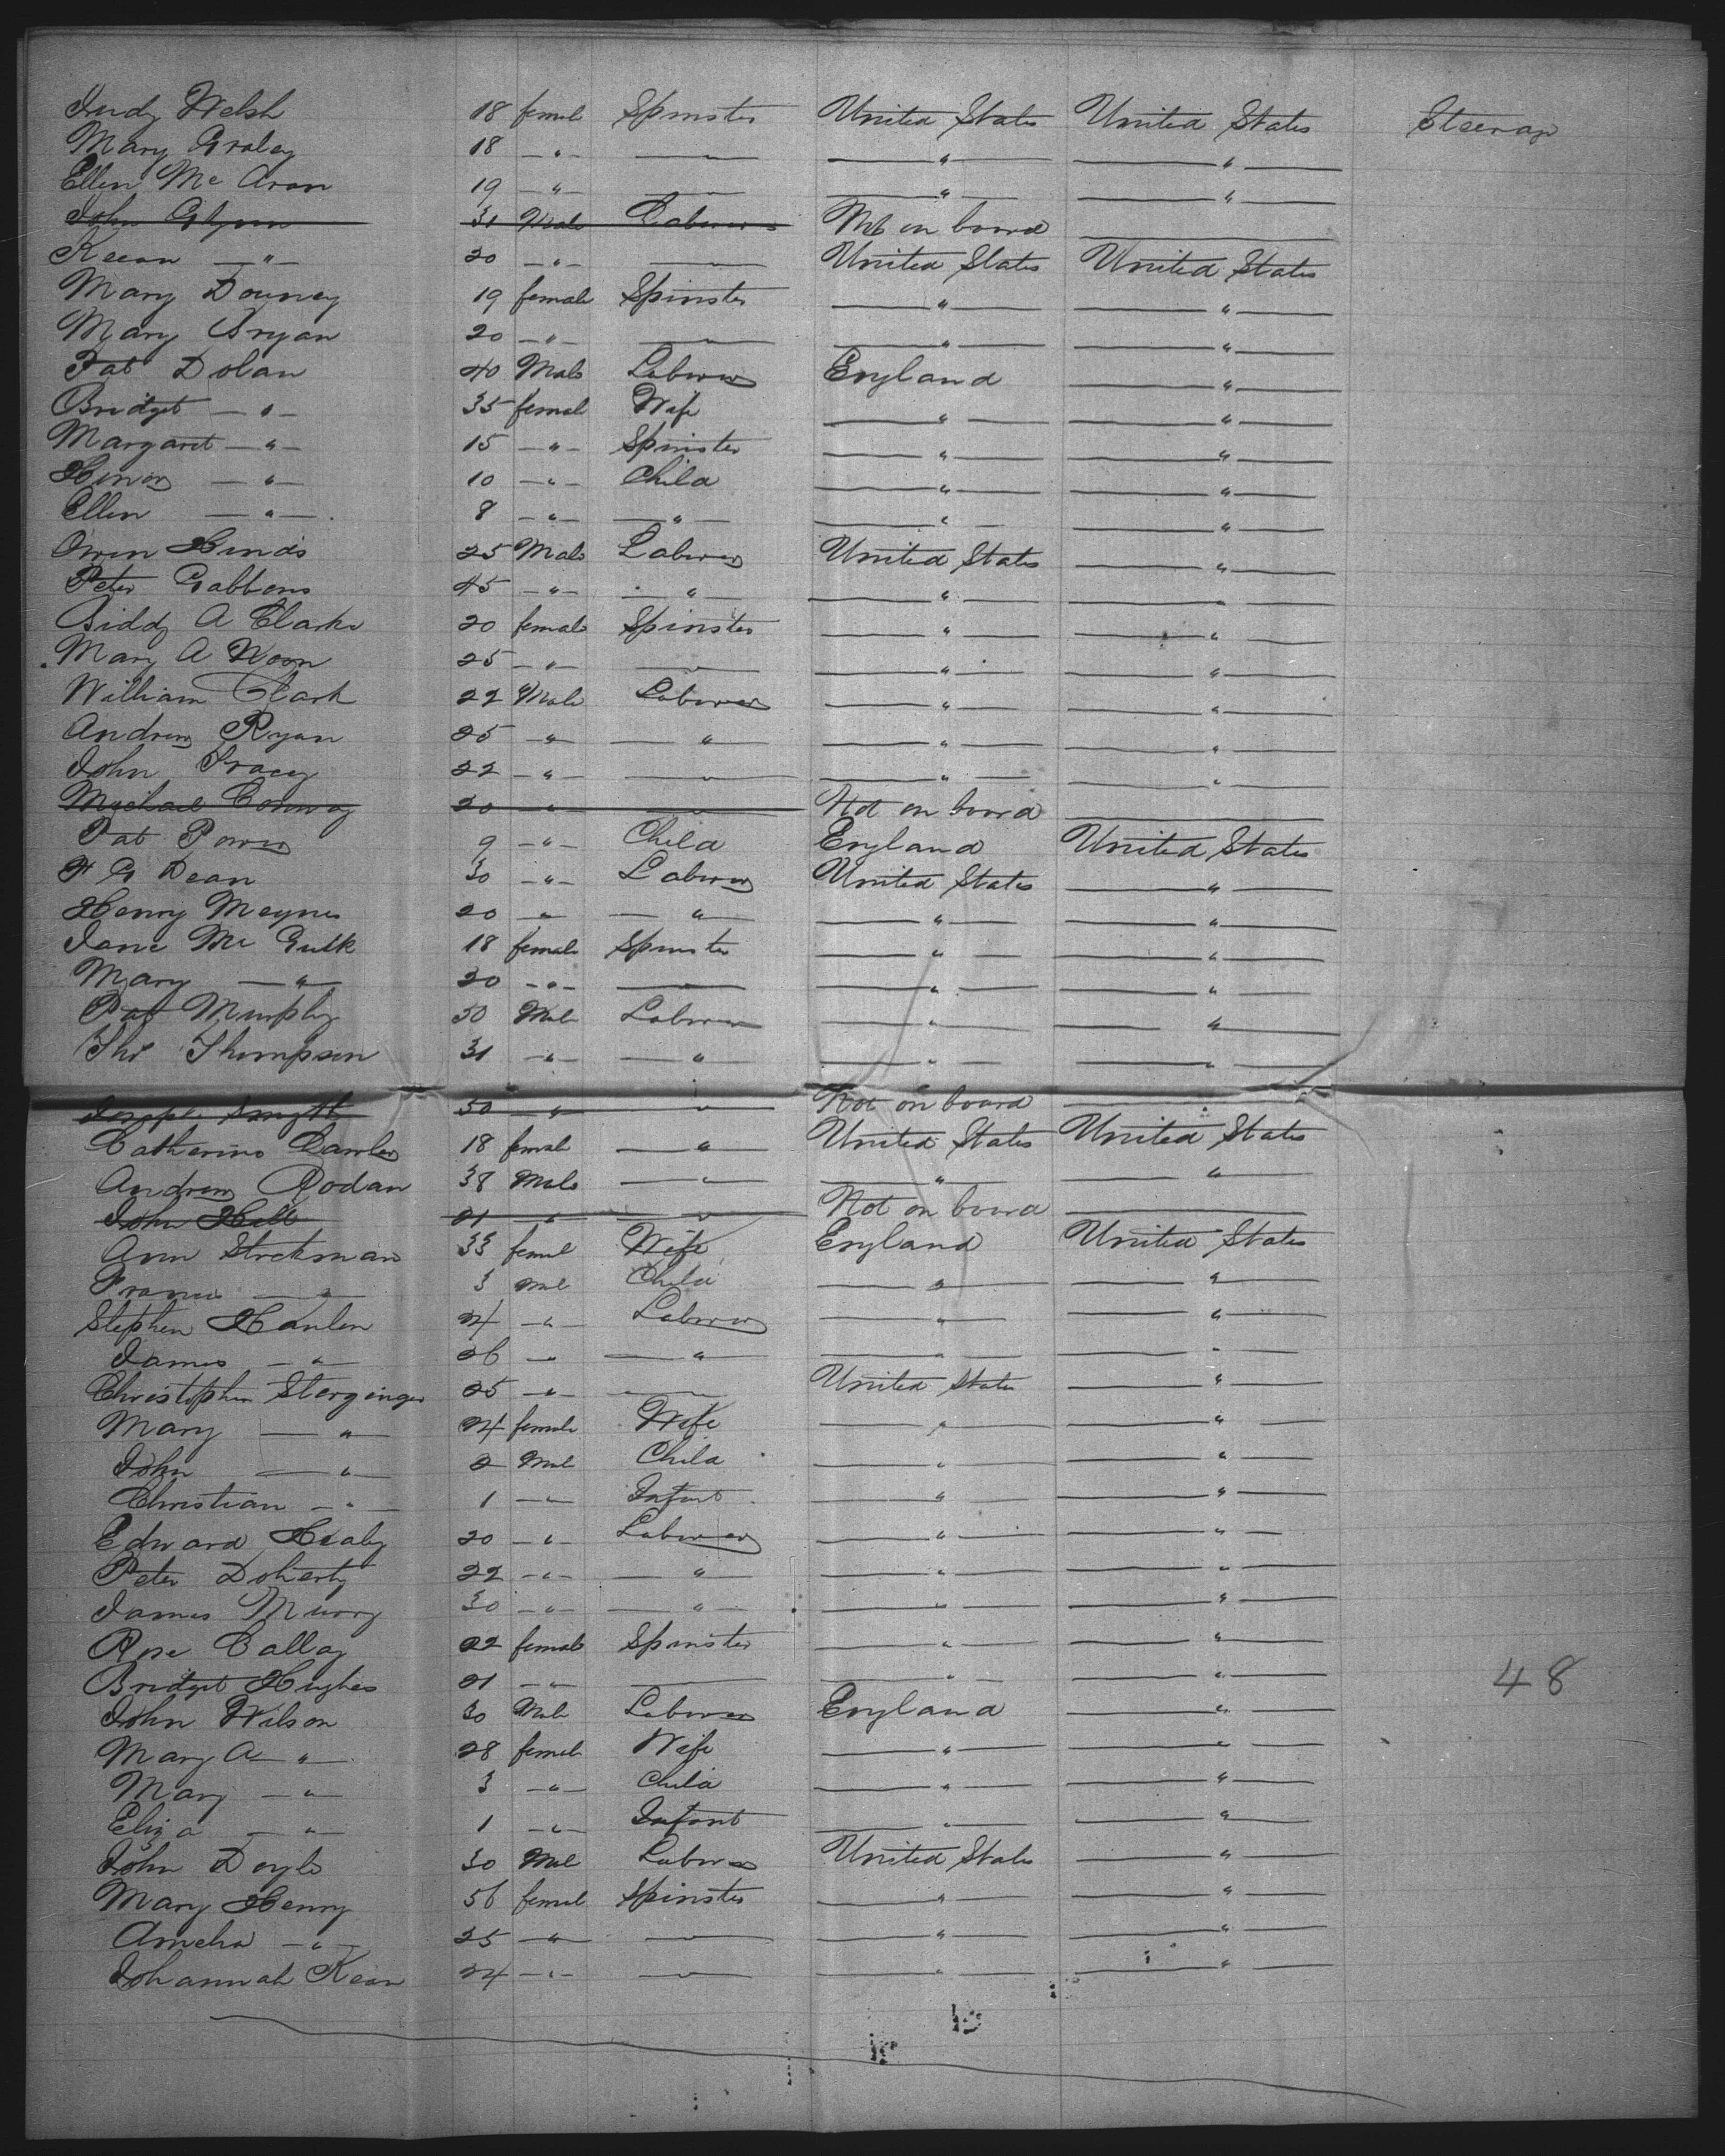 Judy Welsh 18 female Spinster United States United States Steerage
Mary Graley 18 — " — — " — — " — — " —
Ellen Mc Aran 19 — " — — " — — " — — " —
John Glynn 31 Male Laborer Not on board
Keean — " — 20 — " — — " — United States United States
Mary Downey 19 female Spinster — " — — " —
Mary Bryan 20 — " — — " — — " — — " —
Pat Dolan 40 Male Laborer England — " —
Bridget — " — 35 female Wife — " — — " —
Margaret — " — 15 — " — Spinster — " — — " —
Honor — " — 10 — " — Child — " — — " —
Ellen — " — 8 — " — — " — — " — — " —
Owen Hinds 25 Male Laborer United States — " —
Peter Gabbons 45 — " — — " — — " — — " —
Biddy A Clarke 20 female Spinster — " — — " —
Mary A Noon 25 — " — — " — — " — — " —
William Clark 22 Male Laborer — " — — " —
Andrew Ryan 25 — " — — " — — " — — " —
John Tracey 22 — " — — " — — " — — " —
Michael Conway 20 — " — — " — Not on board
Pat Power 9 — " — Child England United States
F G Dean 30 — " — Laborer United States — " —
Henry Meynes 20 — " — — " — — " — — " —
Jane Mc Gurk 18 female Spinster — " — — " —
Mary — " — 20 — " — — " — — " — — " —
Pat Murphy 50 Male Laborer — " — — " —
Tho Thompson 31 — " — — " — — " — — " —
Smyth 50 — " — — " — Not on board
Catherine Lawler 18 female — " — United States United States
Andrew Rodan 38 Male — " — — " — — " —
John Hall 21 — " — — " — Not on board
Ann Stockman 33 female Wife England United States
Francis — " — 3 Male Child — " — — " —
Stephen Hanlen 24 — " — Laborer — " — — " —
James — " — 26 — " — — " — — " — — " —
Christopher 25 — " — — " — United States — " —
Mary — " — 24 female Wife — " — — " —
John — " — 2 Male Child — " — — " —
Christian — " — 1 — " — Infant — " — — " —
Edward Healy 20 — " — Laborer — " — — " —
Peter Doherty 22 — " — — " — — " — — " —
James Murry 30 — " — — " — — " — — " —
Rose Callay 22 female Spinster — " — — " —
Bridget Hughes 21 — " — — " — — " — — " — 48
John Wilson 30 Male Laborer England — " —
Mary A — " — 28 female Wife — " — — " —
Mary — " — 3 — " — Child — " — — " —
Eliza — " — 1 — " — Infant — " — — " —
John Doyle 30 Male Laborer United States — " —
Mary Henry 56 female Spinster — " — — " —
Amelia — " — 25 — " — — " — — " — — " —
Johannah Kean 24 — " — — " — — " — — " —